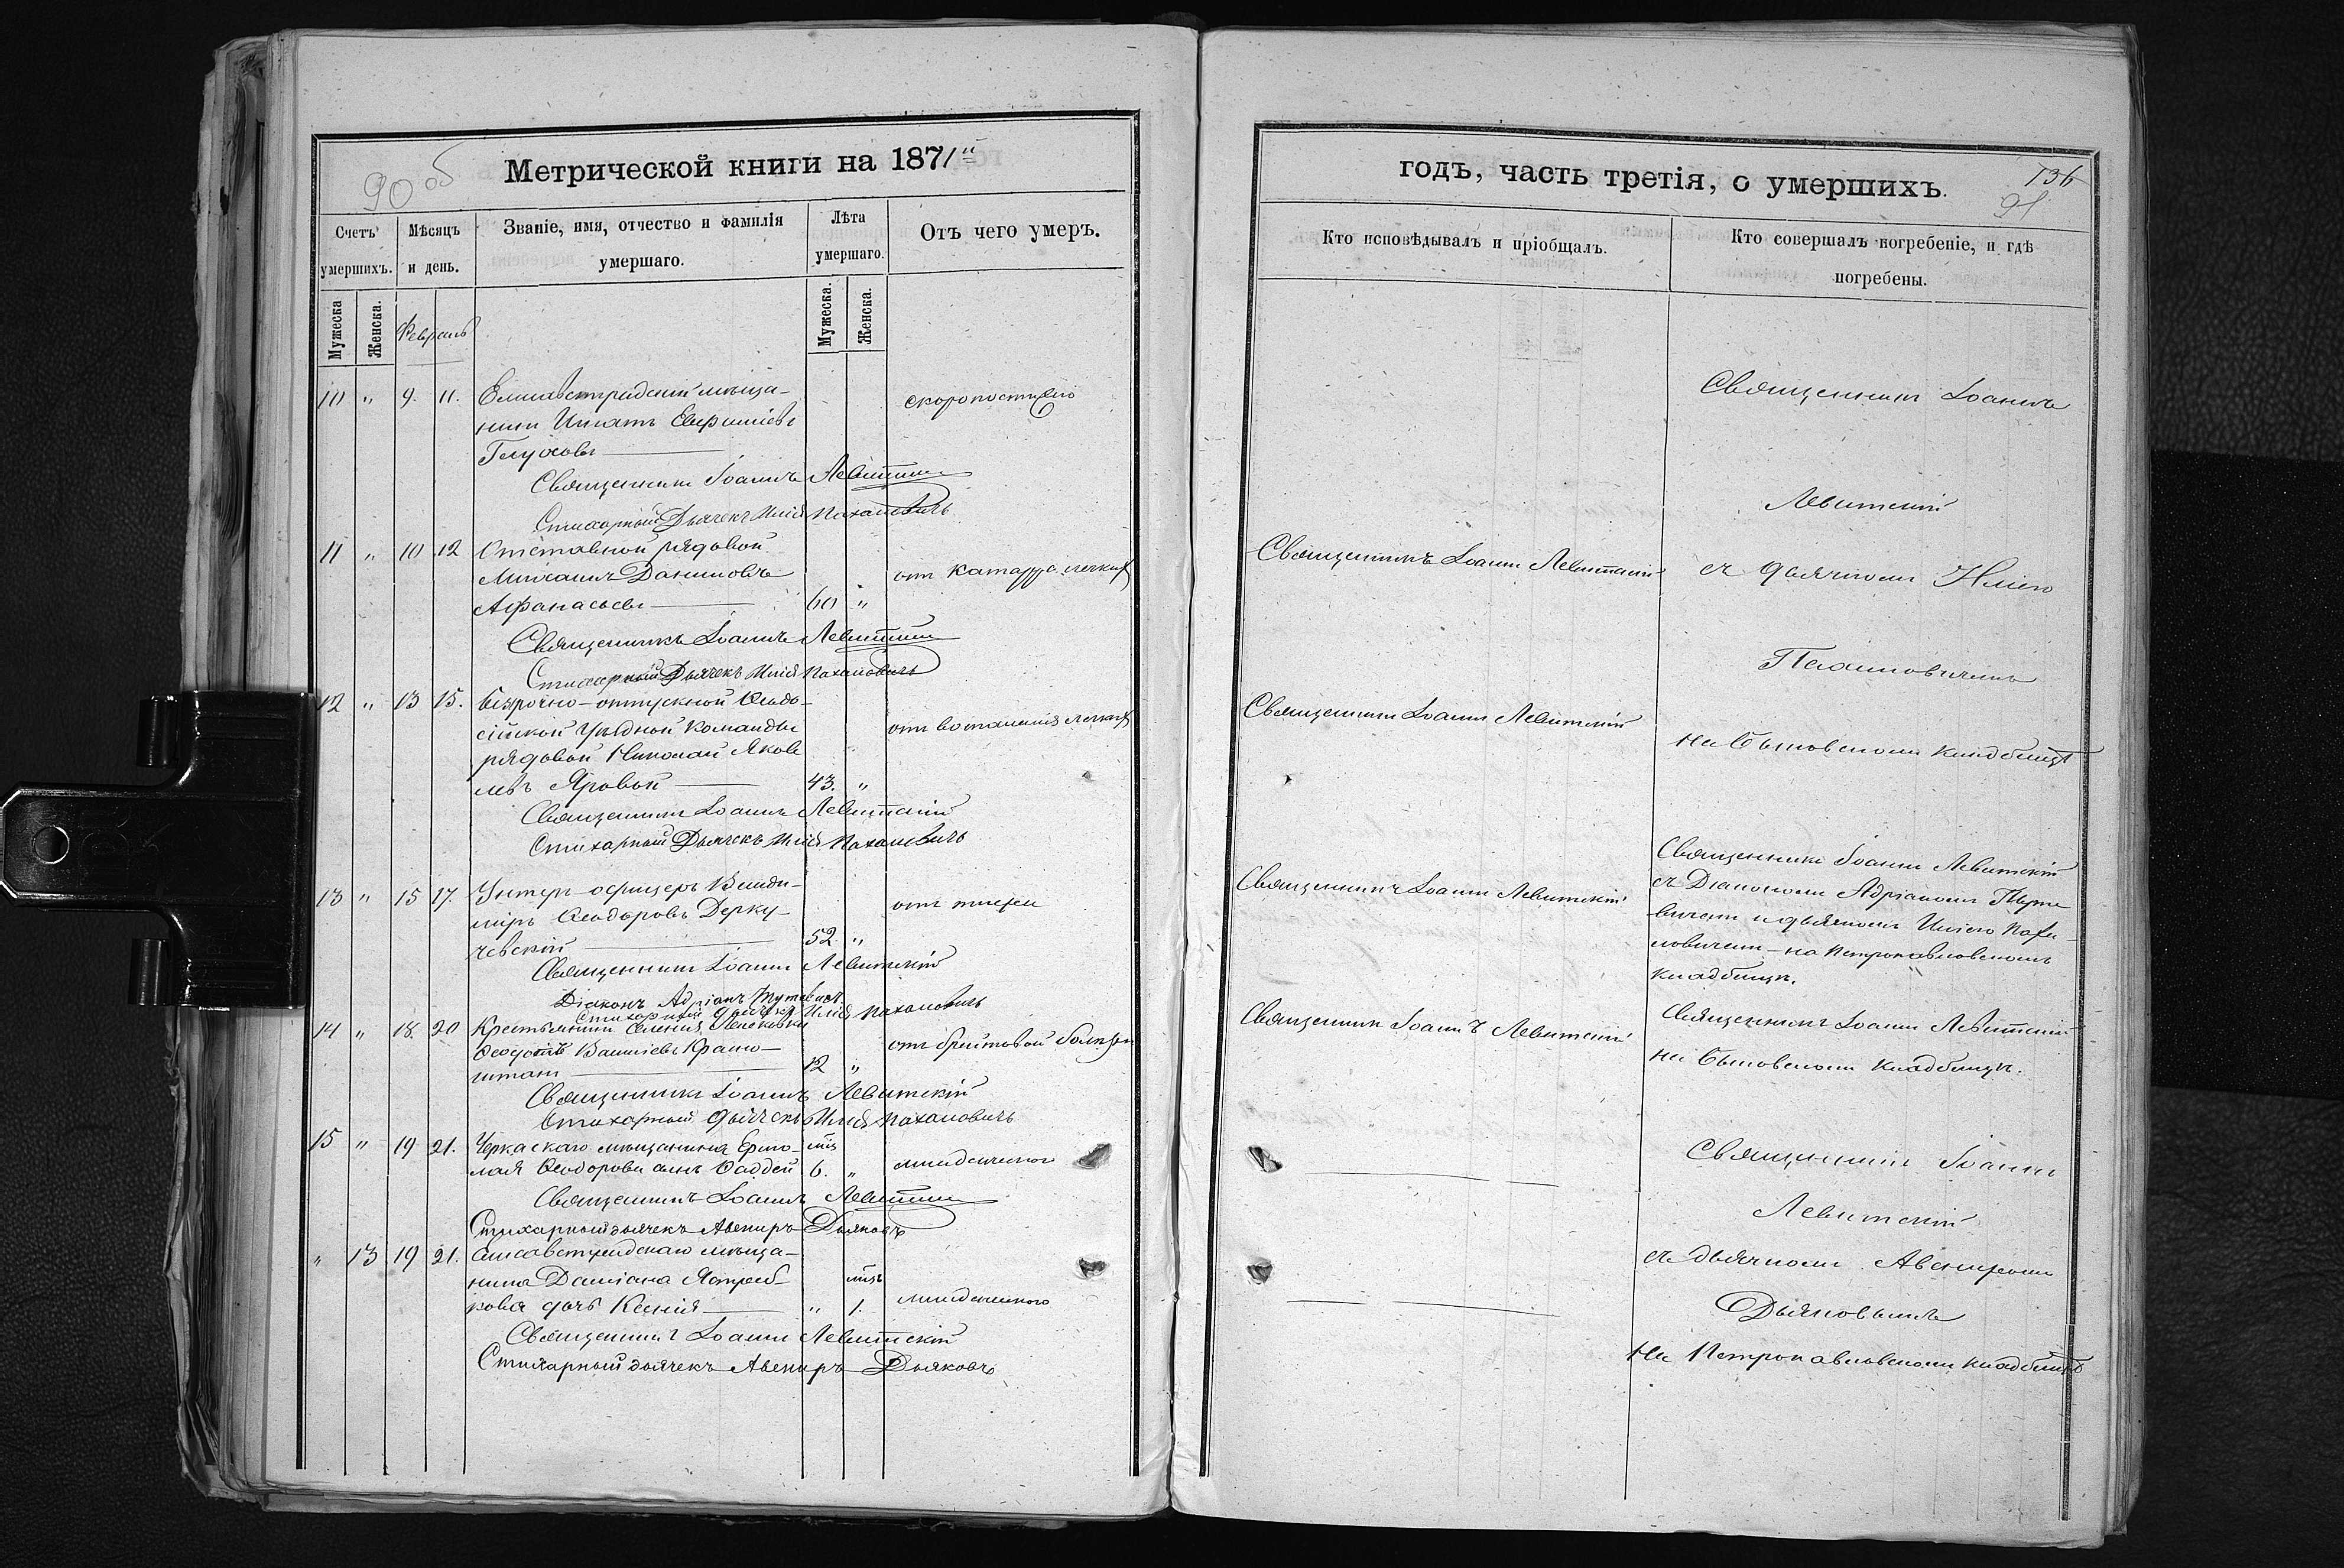 90 об
Метрической книги на 1871й
Счетъ умершихъ.
Мѣсяцъ и день.
Званіе, имя, отчество и фамилія умершаго.
Лѣта умершаго.
Отъ чего умеръ.
Мужеска
Женска.
Февраль
Мужеска.
Женска.
10 " 9. 11. Елисаветградскій мѣща-
нинъ Игнатъ
Глуховъ
скоропостижно
Священникъ Іоаннъ Левитскій
Стихарный Дьячекъ Илія Пахаловичъ
11 " 10 12 Отставной рядовой
Михаилъ Даниловъ
Афанасьевъ 60 "
отъ катарра легкихъ
Священникъ Іоаннъ Левитскій
Стихарный Дьячекъ Илія Пахаловичъ
12 " 13 15. безсрочно-отпускной Ѳеодо-
сійской уѣздной команды
рядовой Николай Яков
левъ Яровой 43. "
отъ воспаленія легкихъ
Священникъ Іоаннъ Левитскій
Стихарный Дьячекъ Илія Пахаловичъ
13 " 15 17. Унтеръ-офицеръ Влади-
міръ Ѳеодоровъ Дерку-
чевскій 52 "
отъ
Священникъ Іоаннъ Левитскій
Діаконъ Адріанъ
Стихарный дьячекъ Илія Пахаловичъ
14 " 18. 20 Крестьянинъ селенія
Ѳеодотъ Василіевъ
12 "
отъ болѣзни
Священникъ Іоаннъ Левитскій
Стихарный дьячекъ Илія Пахаловичъ
15 " 19 21. Черкаскаго мѣщанина Ермо-
лая Ѳеодорова сынъ Ѳаддей мѣс 6. "
младенческой
Священникъ Іоаннъ Левитскій
Стихарный дьячекъ Авениръ Дьяковъ
" 13 19 21. Елисаветградскаго мѣща-
нина Даміана Ястреб
кова дочь Ксенія " мѣс 1.
младенческой
Священникъ Іоаннъ Левитскій
Стихарный дьячекъ Авениръ Дьяковъ
годъ, часть третія, о умершихъ.
136
91
Кто исповѣдывалъ и пріобщалъ.
Кто совершалъ погребеніе, и гдѣ погребены.
Священникъ Іоаннъ
Левитскій
Священникъ Іоаннъ Левитскій
съ дьячкомъ Иліею
Пахаловичемъ
Священникъ Іоаннъ Левитскій
на Быковскомъ кладбищѣ
Священникъ Іоаннъ Левитскій
Священникъ Іоаннъ Левитскій
съ Діакономъ Адріаномъ
вичемъ и дьячкомъ Иліею Паха-
ловичемъ - на Петропавловскомъ
кладбищѣ.
Священникъ Іоаннъ Левитскій
Священникъ Іоаннъ Левитскій
на Быковскомъ кладбищѣ.
Священникъ Іоаннъ
Левитскій
съ дьячкомъ Авениромъ
Дьяковымъ
На Петропавловскомъ кладбищѣ